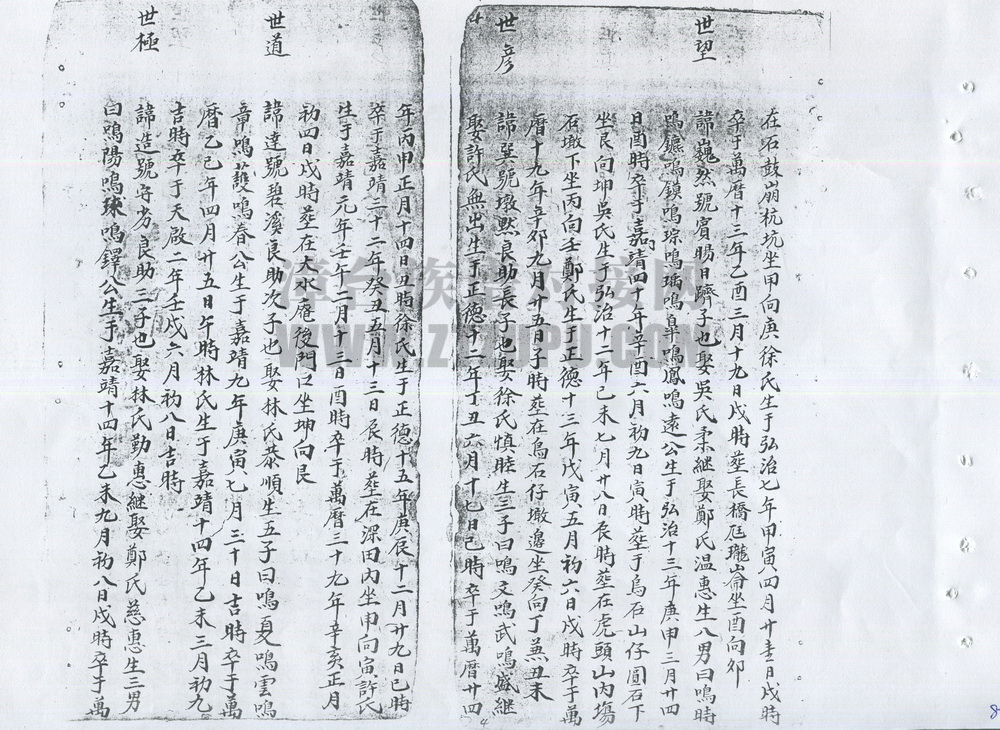 世望
在石鼓崩杭坑坐甲向庚徐氏生于弘治七年甲寅四月廿壹日戌時
卒于萬曆十三年乙酉三月十九日戌時塟長橋尾瓏崙坐酉向卯
諱巍然號賓暘日躋子也娶吳氏柔繼娶鄭氏温惠生八男曰鳴時
鳴鑣鳴鎮鳴琮鳴瑀鳴臯鳴鳳鳴遠公生于弘治十三年庚申三月廿四
日酉時卒于嘉靖四十年辛酉六月初九日寅時塟于烏石山仔圓石下
坐艮向坤吳氏生于弘治十二年己未七月廿八日辰時塟在虎頭山内塲
石墩下坐丙向壬鄭氏生于正德十三年戊寅五月初六日戌時卒于萬
曆十九年辛卯九月廿五日子時塟在烏石仔墩邊坐癸向丁兼丑未
世彦
諱巽號墩默良助長子也娶徐氏慎睦生三子曰鳴文鳴武鳴盛繼
娶許氏無出生于正德十二年丁丑六月十七日巳時卒于萬曆廿四
年丙申正月十四日丑時徐氏生于正德十五年庚辰十二月廿九日巳時
卒于嘉靖三十二年癸丑五月十三日辰時塟在深田内坐申向寅許氏
生于嘉靖元年壬午二月十三日酉時卒于萬曆三十九年辛亥正月
初四日戌時塟在大水庵後門口坐坤向艮
世道
諱達號碧溪良助次子也娶林氏恭順生五子曰鳴夏鳴雲鳴
章鳴䕶鳴春公生于嘉靖九年庚寅七月三十日吉時卒于萬
曆乙巳年四月廿五日午時林氏生于嘉靖十四年乙未三月初九
吉時卒于天啟二年壬戌六月初八日吉時
世極
諱造號守劣良助三子也娶林氏勤惠繼娶鄭氏慈惠生三男
曰鳴陽鳴球鳴鐸公生于嘉靖十四年乙未九月初八日戌時卒于萬
漳台族譜对接网
WWW.ZTZUPU.COM